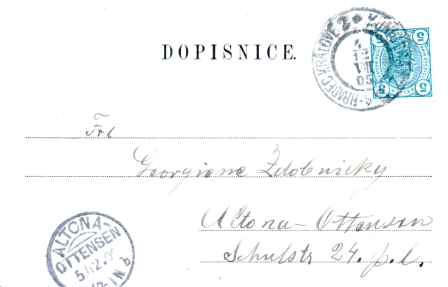 DOPISNICE.
HRADEC KRÁLOVÉ 2
4
12
05
5 5
Frl
Georgione Zdobnicky
Altona-Ottensen
Schulstr 24. p.l.
ALTONA-
OTTENSEN
5.12.